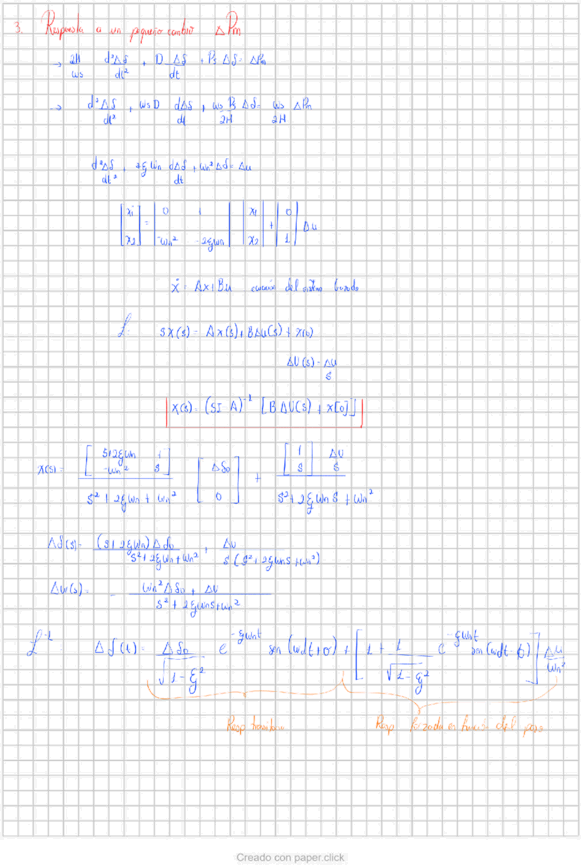 3. Respuesta a un pequeño cambio ΔPm
→ 2H/ws d²Δδ/dt² + D Δδ/dt + Ps Δδ = ΔPm
→ d²Δδ/dt² + ws D dΔδ/dt + ws Ps/2H Δδ = ws/2H ΔPm
d²Δδ/dt² + 2ξwn dΔδ/dt + wn² Δδ = Δu
[ẋ1 ẋ2] = [0 1 -wn² -2ξwn] [x1 x2] + [0 1] Δu
ẋ = Ax + Bu ecuación del sistema
ℒ sX(s) = Ax(s) + BΔU(s) + x(0)
ΔU(s) = Δu/s
X(s) = (SI A)⁻¹ [B ΔU(s) + x[0]]
X(s) = [s+2ξwn 1 -wn² s]/s² + 2ξwn + wn² [Δδ0 0] + [1 s] Δu/s / s² + 2ξwn s + wn²
Δδ(s) = (s+2ξwn)Δδ0/s²+2ξwn+wn² + Δu/s(s²+2ξwns+wn²)
Δw(s) = wn²Δδ0 + Δu/s² + 2ξwns+wn²
ℒ⁻¹ Δδ(t) = Δδ0/√1-ξ² e^-ξwnt sen(wdt+θ) + [1 + 1/√1-ξ² e^-ξwnt sen(wdt-θ)] Δu/wn²
Resp Resp forzada en función del paso
Creado con paper.click